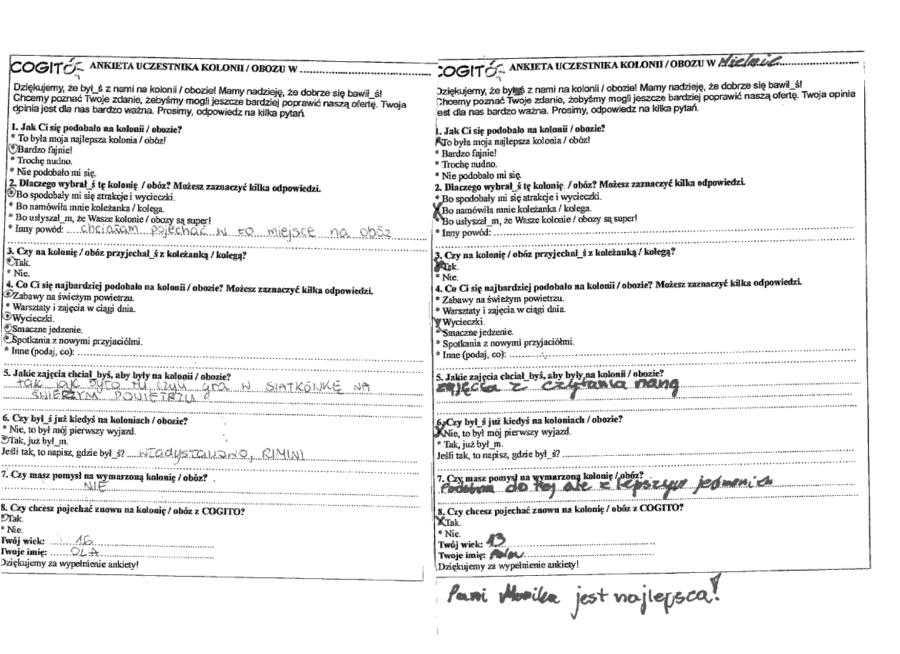 COGITO ANKIETA UCZESTNIKA KOLONII / OBOZU W
Dziękujemy, że był_ś z nami na kolonii / obozie! Mamy nadzieję, że dobrze się bawił_ś!
Chcemy poznać Twoje zdanie, żebyśmy mogli jeszcze bardziej poprawić naszą ofertę. Twoja opinia jest dla nas bardzo ważna. Prosimy, odpowiedz na kilka pytań.
1. Jak Ci się podobało na kolonii / obozie?
* To była moja najlepsza kolonia / obóz!
* Bardzo fajnie!
* Trochę nudno.
* Nie podobało mi się.
2. Dlaczego wybrał_ś tę kolonię / obóz? Możesz zaznaczyć kilka odpowiedzi.
* Bo spodobały mi się atrakcje i wycieczki.
* Bo namówiła mnie koleżanka / kolega.
* Bo usłyszał_m, że Wasze kolonie / obozy są super!
* Inny powód: chciałam pojechać w to miejsce na obóz
3. Czy na kolonię / obóz przyjechał_ś z koleżanką / kolegą?
* Tak.
* Nie.
4. Co Ci się najbardziej podobało na kolonii / obozie? Możesz zaznaczyć kilka odpowiedzi.
* Zabawy na świeżym powietrzu.
* Warsztaty i zajęcia w ciągi dnia.
* Wycieczki.
* Smaczne jedzenie.
* Spotkania z nowymi przyjaciółmi.
* Inne (podaj, co):
5. Jakie zajęcia chciał_byś, aby były na kolonii / obozie?
tak jak było tu, czyli gra w SIATKÓWKĘ NA
ŚWIERZYM POWIETRZU
6. Czy był_ś już kiedyś na koloniach / obozie?
* Nie, to był mój pierwszy wyjazd.
* Tak, już był_m.
Jeśli tak, to napisz, gdzie był_ś? Władysławowo, RIMINI
7. Czy masz pomysł na wymarzoną kolonię / obóz?
NIE
8. Czy chcesz pojechać znowu na kolonię / obóz z COGITO?
* Tak.
* Nie.
Twój wiek: 16
Twoje imię: OLA
Dziękujemy za wypełnienie ankiety!
COGITO ANKIETA UCZESTNIKA KOLONII / OBOZU W Mielnie
Dziękujemy, że był_ś z nami na kolonii / obozie! Mamy nadzieję, że dobrze się bawił_ś!
Chcemy poznać Twoje zdanie, żebyśmy mogli jeszcze bardziej poprawić naszą ofertę. Twoja opinia
jest dla nas bardzo ważna. Prosimy, odpowiedz na kilka pytań.
1. Jak Ci się podobało na kolonii / obozie?
* To była moja najlepsza kolonia / obóz!
* Bardzo fajnie!
* Trochę nudno.
* Nie podobało mi się.
2. Dlaczego wybrał_ś tę kolonię / obóz? Możesz zaznaczyć kilka odpowiedzi.
* Bo spodobały mi się atrakcje i wycieczki.
* Bo namówiła mnie koleżanka / kolega.
* Bo usłyszał_m, że Wasze kolonie / obozy są super!
* Inny powód:
3. Czy na kolonię / obóz przyjechał_ś z koleżanką / kolegą?
* Tak.
* Nie.
4. Co Ci się najbardziej podobało na kolonii / obozie? Możesz zaznaczyć kilka odpowiedzi.
* Zabawy na świeżym powietrzu.
* Warsztaty i zajęcia w ciągi dnia.
* Wycieczki.
* Smaczne jedzenie.
* Spotkania z nowymi przyjaciółmi.
* Inne (podaj, co):
5. Jakie zajęcia chciał_byś, aby były na kolonii / obozie?
zajęcia z czytania mang
6. Czy był_ś już kiedyś na koloniach / obozie?
* Nie, to był mój pierwszy wyjazd.
* Tak, już był_m.
Jeśli tak, to napisz, gdzie był_ś?
7. Czy masz pomysł na wymarzoną kolonię / obóz?
do tej ale z lepszym jedzeniem
8. Czy chcesz pojechać znowu na kolonię / obóz z COGITO?
* Tak.
* Nie.
Twój wiek: 13
Twoje imię:
Dziękujemy za wypełnienie ankiety!
Pani Monika jest najlepsca!